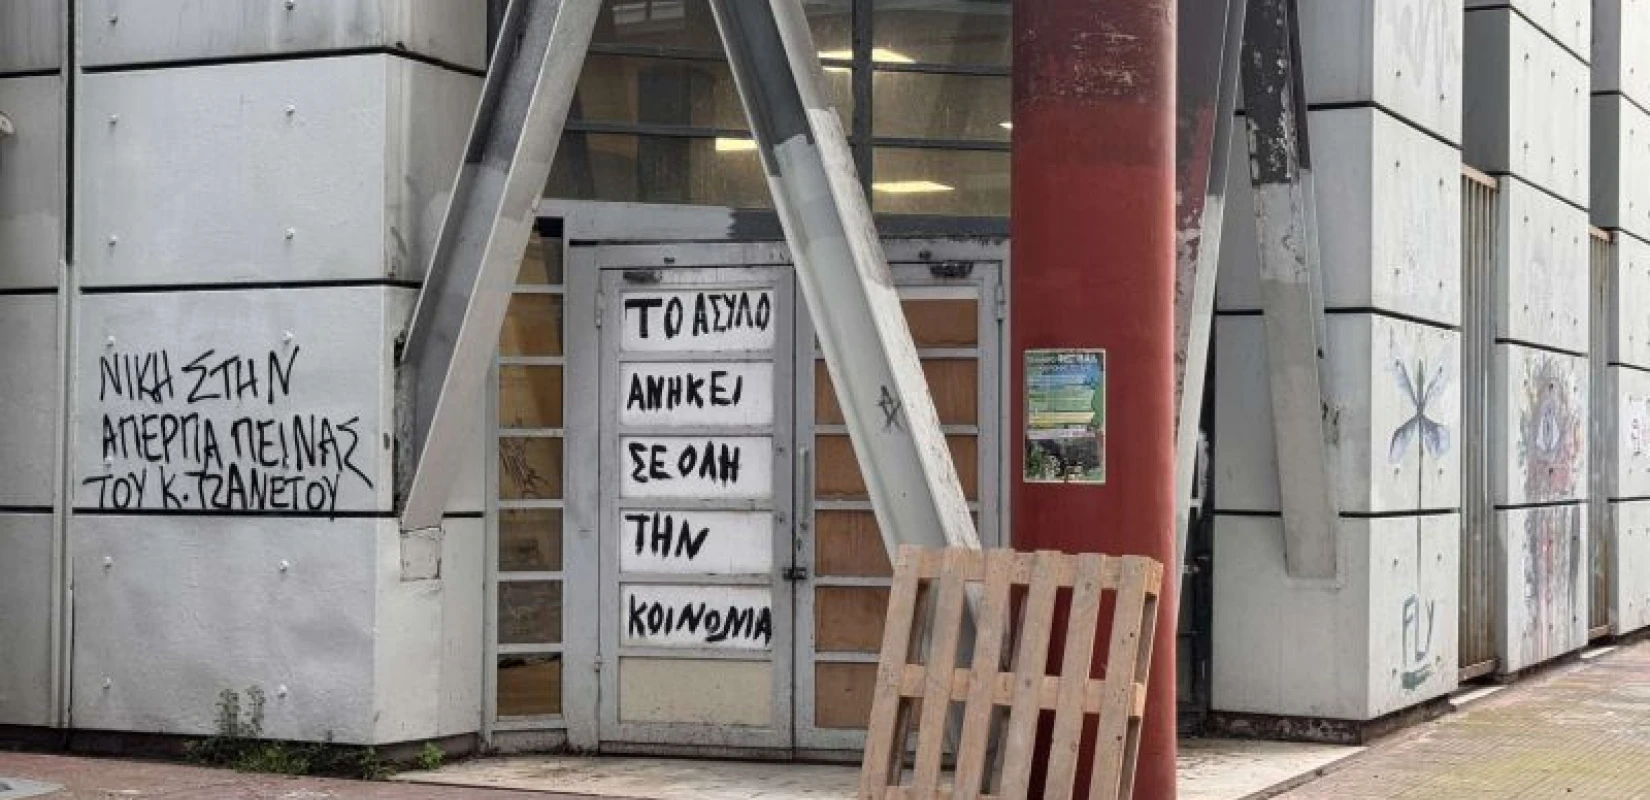 ΝΙΚΗ ΣΤΗΝ
ΑΠΕΡΓΙΑ ΠΕΙΝΑΣ
ΤΟΥ Κ. ΤΖΑΝΕΤΟΥ
ΤΟ ΑΣΥΛΟ
ΑΝΗΚΕΙ
ΣΕ ΟΛΗ
ΤΗΝ
ΚΟΙΝΩΝΙΑ
FLY